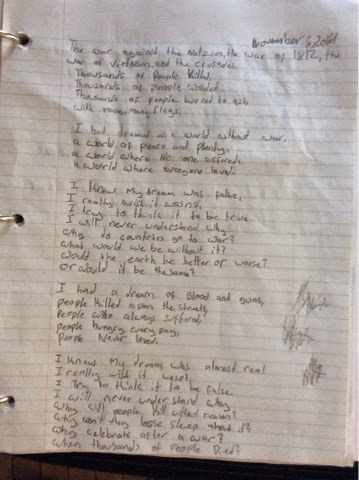 November 6, 2011
The war against the Natzies, the war of 1812, the
war of Vietnam, and the crusades
Thousands of People Killed,
Thousands of people wonded
Thousands of people burned to ash
with many, many flags.
I had dreamed of a world without war.
a world of peace and plenty,
a world where no one suffered.
a world where everyone loved.
I knew My dream was false,
I really wish it wasn't,
I try to think it to be true
I will never understand why
why do countries go to war?
what would we be without it?
Would the earth be better or worse?
Or would it be the same?
I had a dream of Blood and guns,
people killed apon the streets
People who always suffered,
people hungry every day,
People Never loved.
I knew My dream was almost real
I really wish it wasnt
I Try to think it to be false
I will never understand why
Why will people Kill without reason?
Why won't they loose sleep about it?
Why celebrate after a war?
When thousands of People Died?